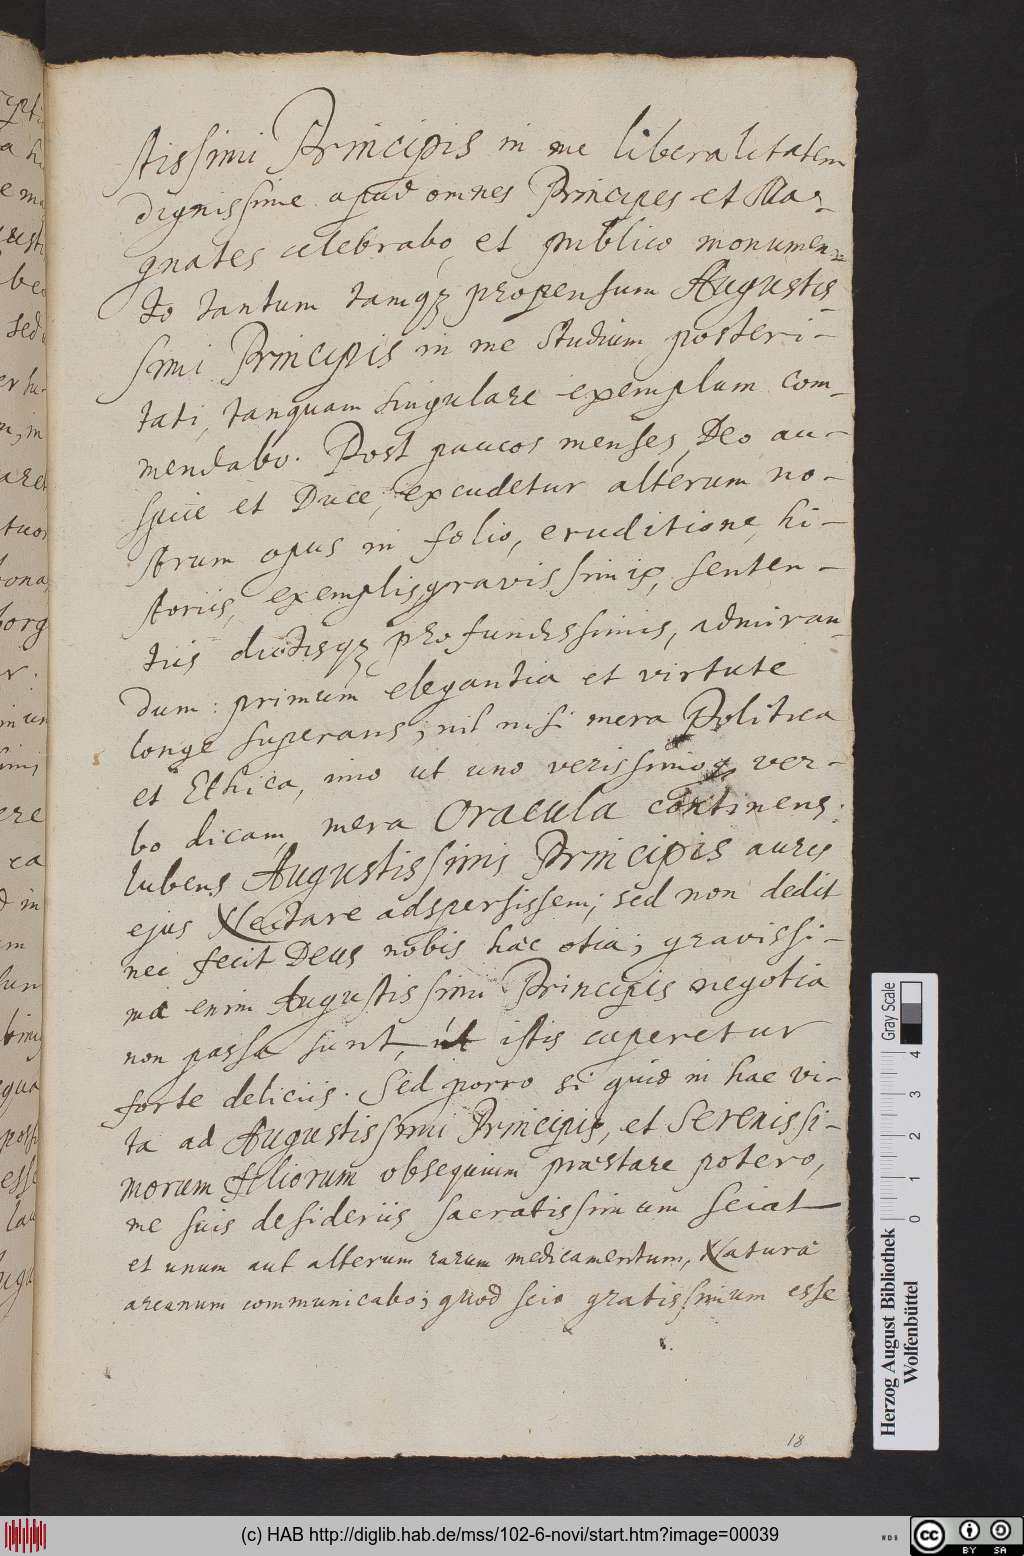 stissimi Principis in me liberalitatem
dignissime apud omnes Principes et Ma-
gnates celebrabo, et publico monumen-
to tantum tamqȝ propensum Augustis-
simi Principis in me studium posteri-
tati, tanquam singulare exemplum com-
mendabo. Post paucos menses, Deo au-
spice et Duce, excudetur alterum no-
strum opus in folio, eruditione, hi-
storiis, exemplis gravissimis, senten-
tiis dictisqȝ profundissimis, admiran-
dum: primum elegantia et virtute
longe superans; nil nisi mera Politica
et Ethica, imo ut uno verissimoqȝ ver-
bo dicam, mera Oracula continens:
lubens Augustissimi Principis aures
ejus Nectare adspersissem; sed non dedit
nec fecit Deus nobis haec otia; gravissi-
ma enim Augustissimi Principis negotia
non passa sunt, ut istis caperetur
forte deliciis. Sed porro si quid in hac vi-
ta ad Augustissimi Principis, et Serenissi-
morum filiorum obsequium praestare potero,
me suis desideriis sacratissimum sciat
et unum aut alterum rarum medicamentum, Naturâ
arcanum communicabo; quod scio gratissimum esse
18
Herzog August Bibliothek
Wolfenbüttel
Gray Scale
0 1 2 3 4
(c) HAB http://diglib.hab.de/mss/102-6-novi/start.htm?image=00039
WDB
cc BY SA